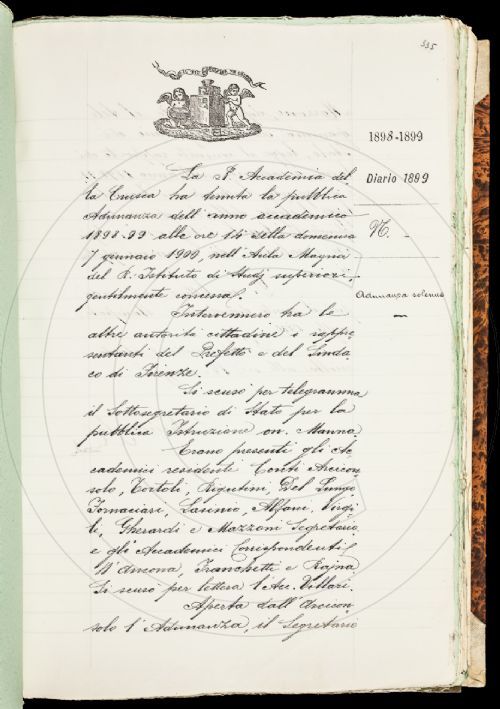 335
1898-1899
Diario 1899
N. -
Adunanza solenne
La R. Accademia del
la Crusca ha tenuto la pubblica
Adunanza dell'anno accademico
1898-99 alle ore 14 della domenica
7 gennaio 1900, nell'Aula Magna
del R. Istituto di Studj superiori,
gentilmente concessa.
Intervennero tra le
altre autorità cittadine i rappre
sentanti del Prefetto e del Sinda
co di Firenze.
Si scusò per telegramma
il Sottosegretario di Stato per la
pubblica Istruzione on. Manna.
Erano presenti gli Ac
cademici residenti Conti Arcicon
solo, Tortoli, Rigutini, Del Lungo
Fornaciari, Tasinio, Alfani, Virgi
li, Gherardi e Mazzoni Segretario
e gli Accademici Corrispondenti
D'Ancona, Franchetti e Rajna
Si scusò per lettera l'Ac. Villari.
Aperta dall'Arcicon
solo l'Adunanza, il Segretario